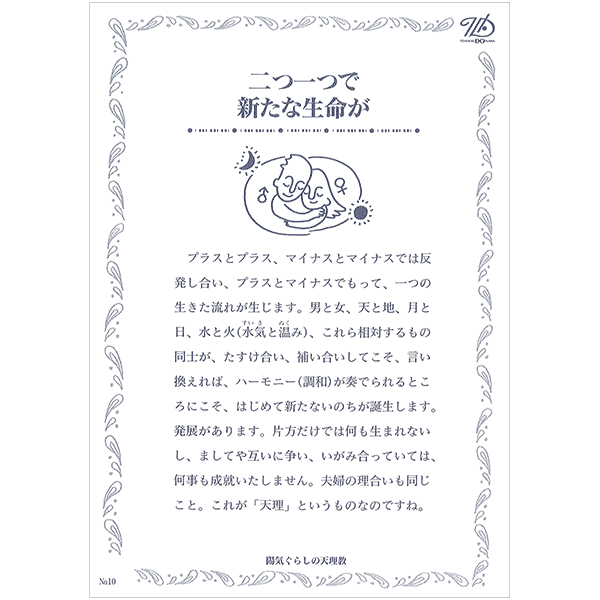 二つ一つで
新たな生命が
プラスとプラス、マイナスとマイナスでは反
発し合い、プラスとマイナスでもって、一つの
生きた流れが生じます。男と女、天と地、月と
日、水と火(水気と温み)、これら相対するもの
同士が、たすけ合い、補い合いしてこそ、言い
換えれば、ハーモニー(調和)が奏でられるとこ
ろにこそ、はじめて新たないのちが誕生します。
発展があります。片方だけでは何も生まれない
し、ましてや互いに争い、いがみ合っていては、
何事も成就いたしません。夫婦の理合いも同じ
こと。これが「天理」というものなのですね。
陽気ぐらしの天理教
No.10